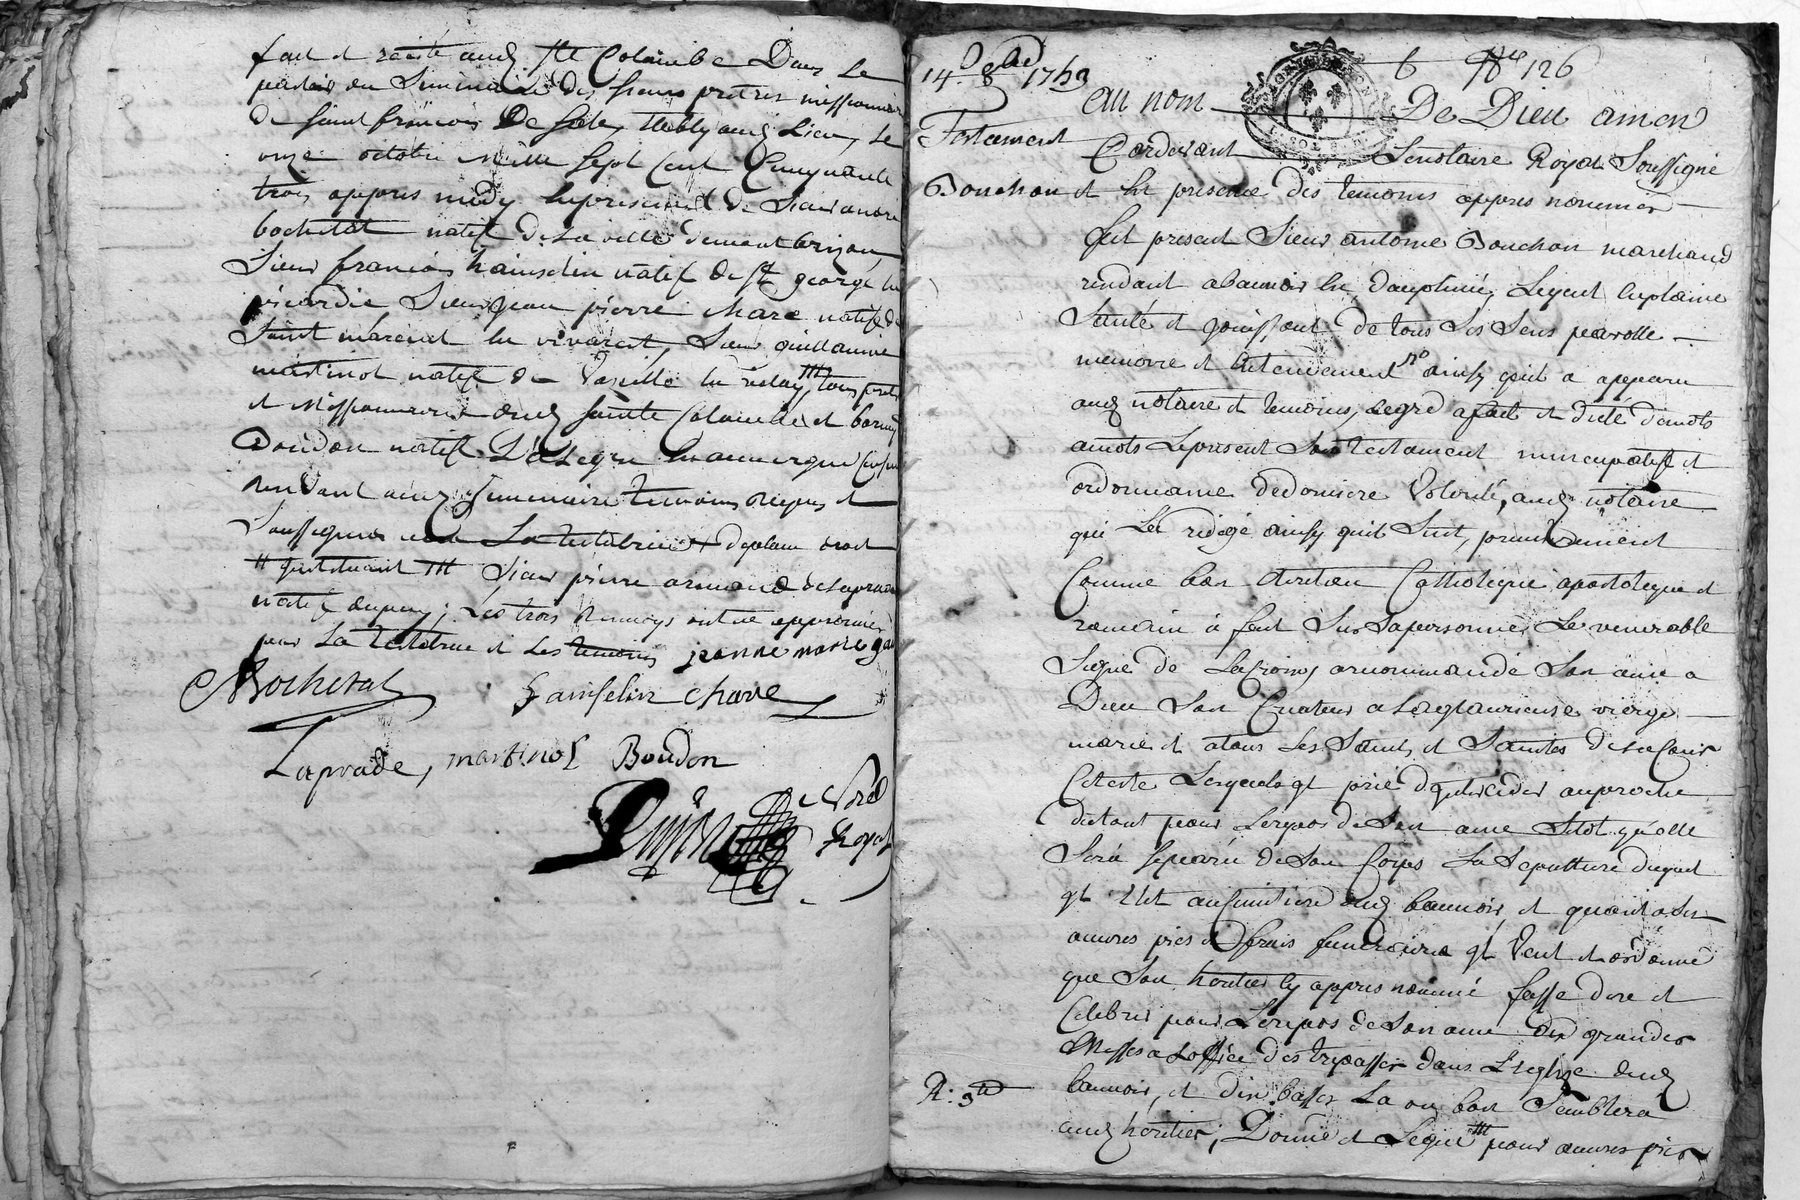 fait et récité aud. Ste Colombe Dans Le
de saint françois De Sales, Etably aud. Lieu, Le
onze octobre mille sept Cent Cinquante
trois appres midy En presence de Sieur andré
bochetat natif de la ville de montbrizon
Sieur francois hainselin natif de St george En
picardie Sieur jean pierre chave natif de
Saint marcial En vivarest, Sieur guillaume
martinot natif de En velay, tous prestres
et Missionnaires aud. sainte Colombe et
Boudon natif D'alegre En auvergne
Rendant aud. Seminaire temoins Requis et
Soussignes La testatrice
Sieur pierre armand
natif dupuy; Les trois Renvoys ont eté approuvés
par La testatrice et Les temoins jeanne marie
Bochetat hainselin chave
Laprade, martinot Boudon
Royal
14 8bre 1753 6 126
au nom De Dieu amen
Testament Pardevant Le notaire Royal Soussigné
Bouchon et En presence des temoins appres nommés
fut present Sieur antoine Bouchon marchand
rendant a baunois En dauphiné, Lequel En plaine
Santé et jouissant de tous Ses Sens parolle
memoire et Entendement ainsy quil a apparu
aud. notaire et temoins, de gré a fait et dicté de mots
a mots Le present Son testament nuncupatif et
ordonnance de derniere Volonté, aud. notaire
qui La redigé ainsy quil Suit, premierement
Comme bon chretien Catholique apostolique et
romain a fait Sur Sa personne Le venerable
Signe de La Croix, a recommandé Son ame a
Dieu Son Createur a La glorieuse vierge
marie et a tous Les Saints et Saintes de La Cour
Celeste Lesquels il prie d'interceder auproche
dictant pour Le repos de Son ame Sitot qu'elle
Sera Separée de Son Corps La Sepulture duquel
il Elit au Cimetiere dud. baunois, et quant a Ses
œuvres pies et frais funeraires il Veut et ordonne
que Son heritier Cy appres nommé fasse dire et
Celebrer pour Le repos de Son ame dix grandes
Messes a L'office des trepassés dans L'eglize dud.
R: 3tt baunois, et dix basses La ou bon Semblera
aud. heritier; Donne et Legue pour œuvres pies